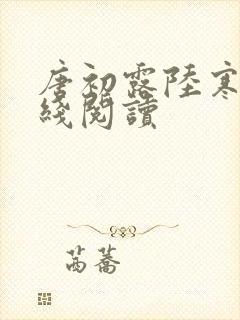 唐初露陸寒
綫閱讀
芮蕎